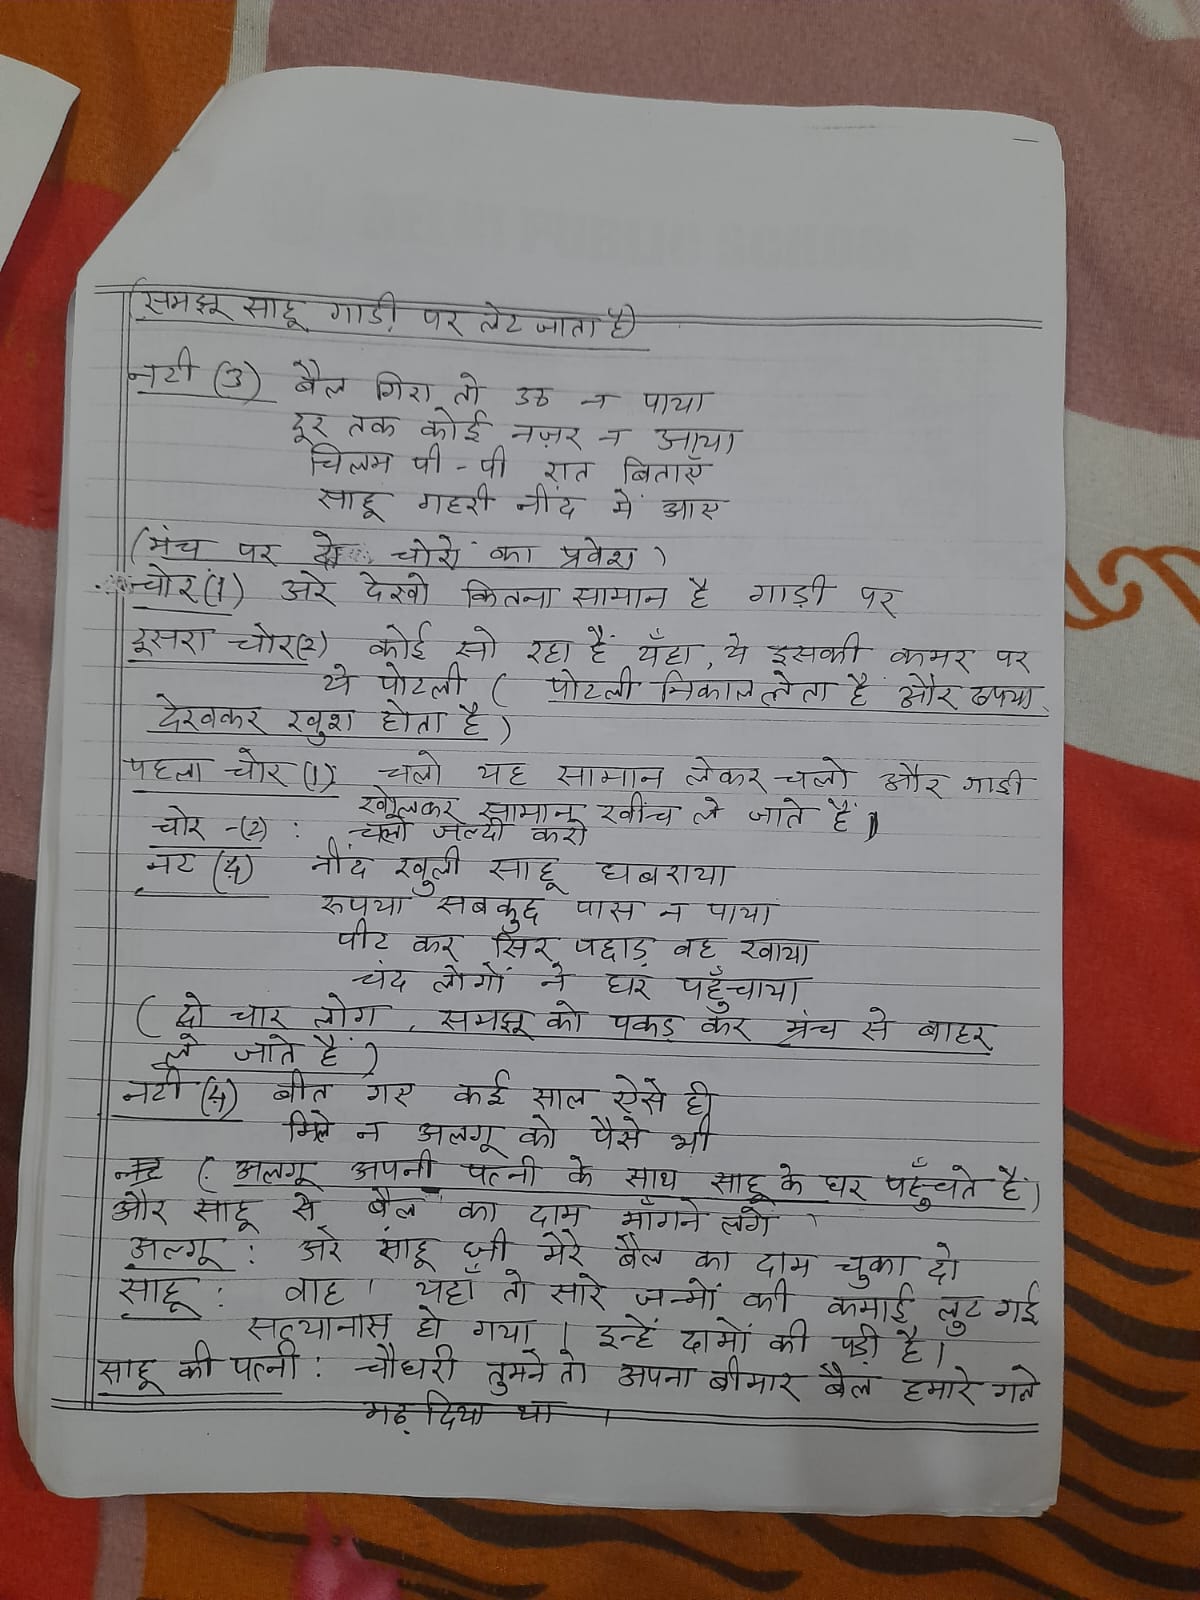 (समझू साहू गाडी पर लेट जाता है)
नटी (3) बैल गिरा तो उठ न पाया
दूर तक कोई नज़र न आया
चिलम पी - पी रात बिताएँ
साहू गहरी नींद में आए
(मंच पर दो चोरों का प्रवेश)
चोर (1) अरे देखो कितना सामान है गाड़ी पर
दूसरा चोर(2) कोई सो रहा हैं यँहा, ये इसकी कमर पर
ये पोटली ( पोटली निकाल लेता है और रुपया
देखकर खुश होता है)
पहला चोर (1) चलो यह सामान लेकर चलो और गाडी
खोलकर सामान खींच ले जाते हैं)
चोर -(2) : चलो जल्दी करो
नट (4) नींद खुली साहू घबराया
रुपया सबकुछ पास न पाया
पीट कर सिर पछाड़ वह खाया
चंद लोगों ने घर पहुँचाया
( दो चार लोग, समझू को पकड़ कर मंच से बाहर
ले जाते हैं)
नटी (4) बीत गए कई साल ऐसे ही
मिले न अलगू को पैसे भी
नट ( अलगू अपनी पत्नी के साथ साहू के घर पहुँचते हैं)
और साहू से बैल का दाम माँगने लगे ।
अल्गू : अरे साहू जी मेरे बैल का दाम चुका दो
साहू : वाह । यहाँ तो सारे जन्मों की कमाई लुट गई
सत्यानास हो गया । इन्हें दामों की पड़ी है।
साहू की पत्नी : चौधरी तुमने तो अपना बीमार बैल हमारे गले
मढ़ दिया था ।